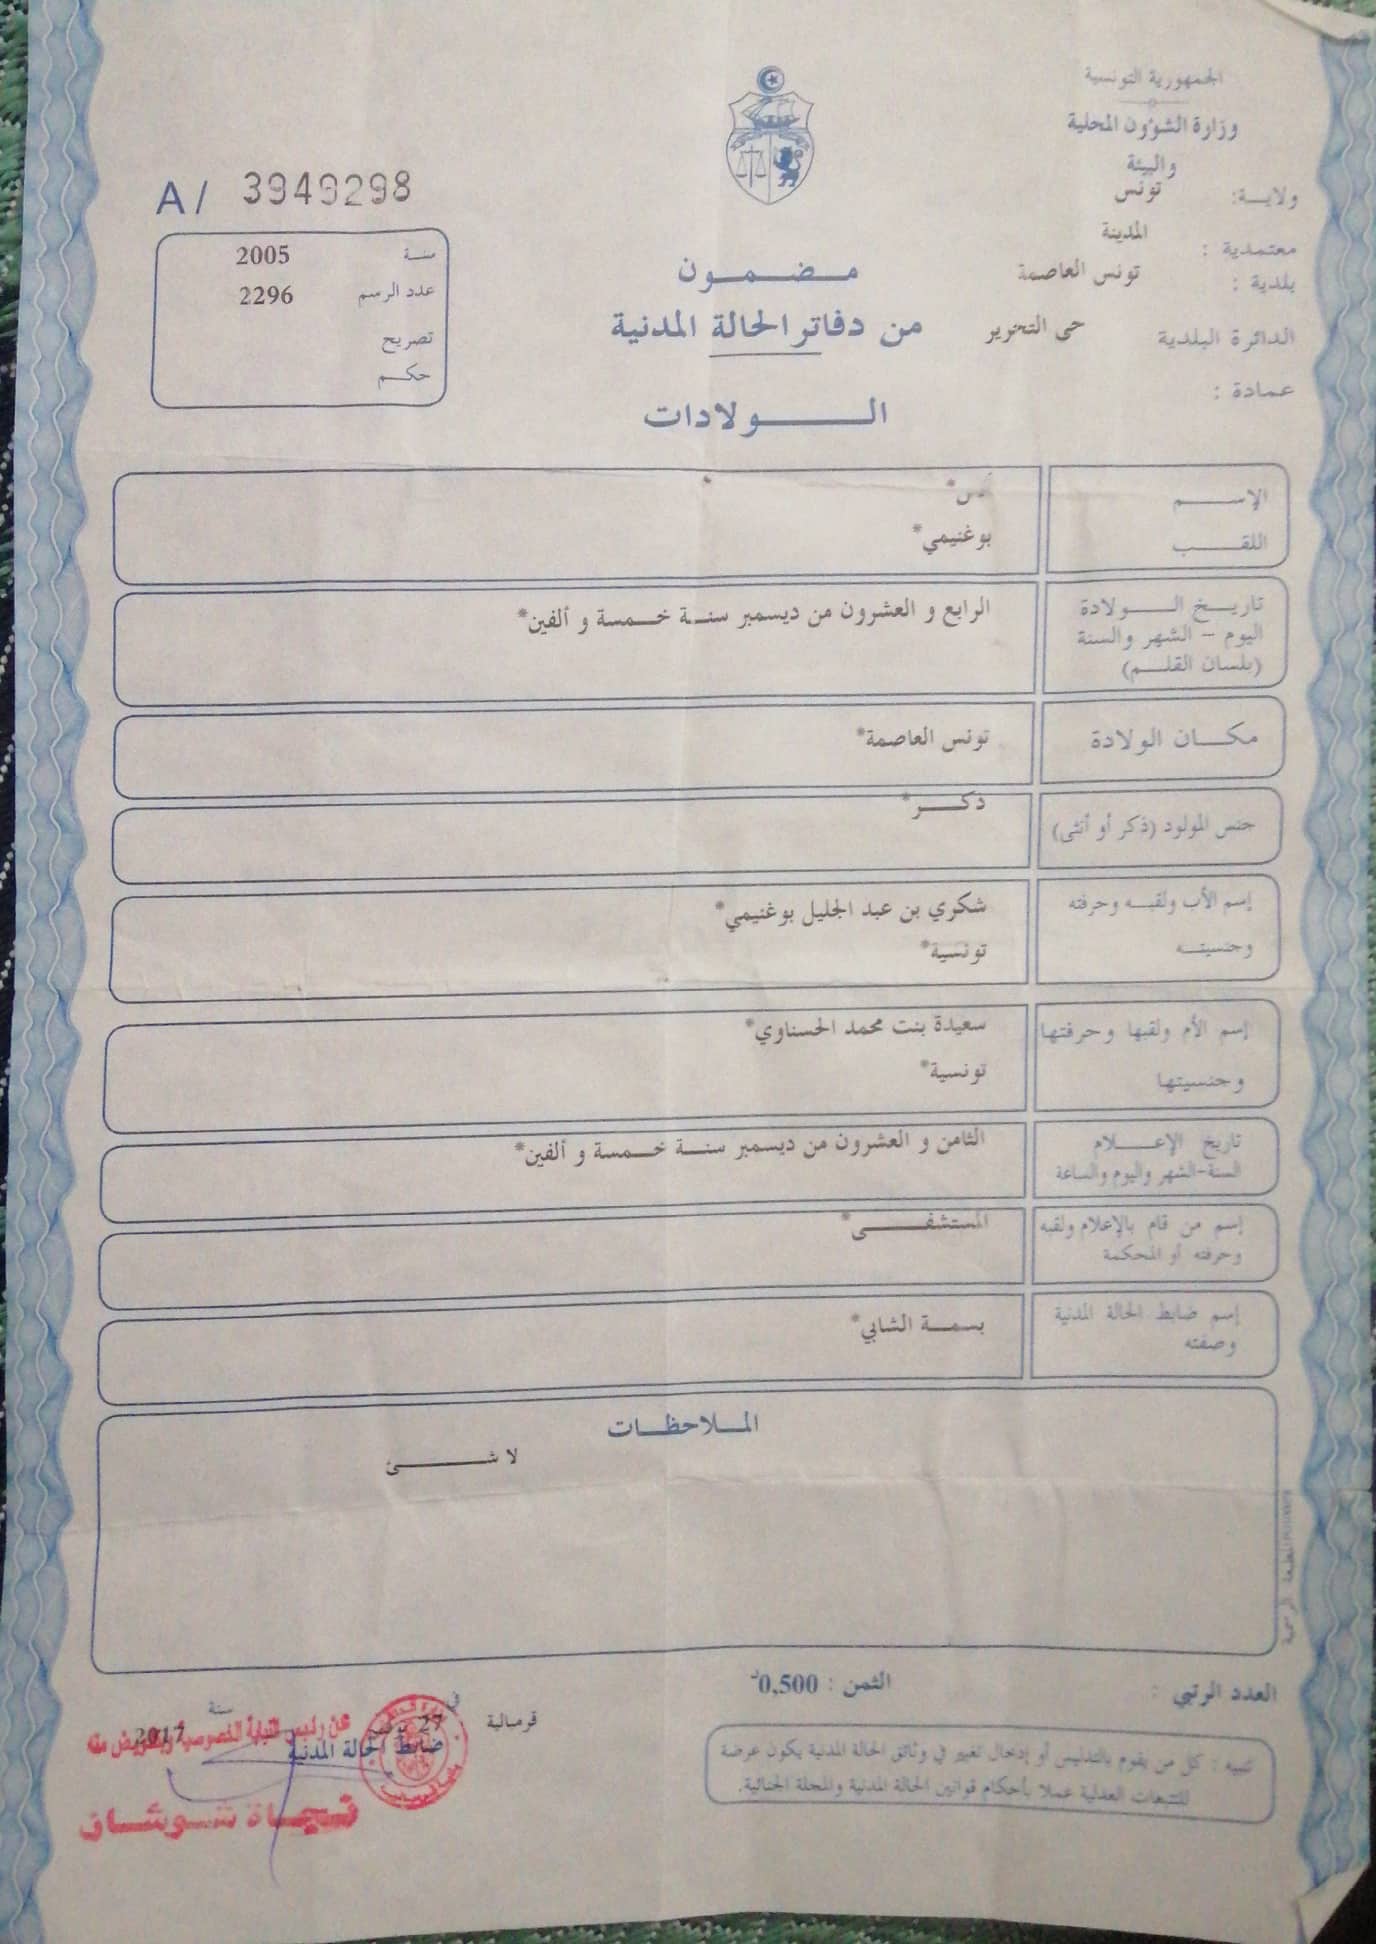 الجمهورية التونسية
وزارة الشؤون المحلية
والبيئة
ولايـة: تونس
معتمدية : المدينة
بلدية : تونس العاصمة
الدائرة البلدية حى التحرير
عمادة :
A/ 3949298
سنـة 2005
عدد الرسم 2296
تصريح
حكـم
مـضـمـون
من دفاتر الحالة المدنية
الـولادات
الإسـم
اللقـب بوغنيمي*
تاريـخ الـولادة
اليوم - الشهر والسنة
(بلسان القلـم)
الرابع و العشرون من ديسمبر سنـة خـمسة و ألفين*
مكـان الولادة تونس العاصمة*
جنس المولود (ذكر أو أنثى) ذكـر*
إسم الأب ولقبـه وحرفته شكري بن عبد الجليل بوغنيمي*
وجنسيتـه تونسية*
إسم الأم ولقبها وحرفتها سعيدة بنت محمد الحسناوي*
وجنسيتها تونسية*
تاريخ الإعـلام
السنة-الشهر واليوم والساعة
الثامن و العشرون من ديسمبر سنـة خـمسة و ألفين*
إسم من قام بالإعلام ولقبه
وحرفته أو المحكمة
المستشفـى*
إسم ضابط الحالة المدنية
وصفته
بسمـة الشابي*
المـلاحظـات
لا شـئ
المطبعة الرسمية
العدد الرتبي :
الثمن : 0,500د
قرمبالية في 27 سنة 2017
ضابط الحالة المدنية
عن رئيس النيابة الخصوصية وبتفويض منه
نجـاة شـوشـان
تنبيه : كل من يقوم بالتدليس أو إدخال تغيير في وثائق الحالة المدنية يكون عرضة
للتتبعات العدلية عملا بأحكام قوانين الحالة المدنية والمجلة الجنائية.